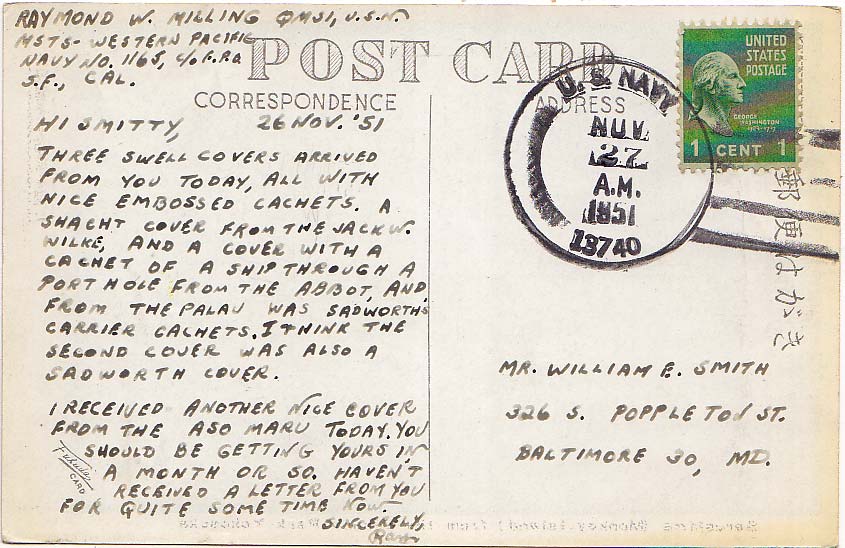 RAYMOND W. MILLING QMS1, U.S.N.
MSTS-WESTERN PACIFIC
NAVY NO. 1165, c/o F.P.O.
S.F., CAL.
POST CARD
CORRESPONDENCE
ADDRESS
HI SMITTY, 26 NOV. '51
THREE SWELL COVERS ARRIVED
FROM YOU TODAY, ALL WITH
NICE EMBOSSED CACHETS. A
SHACHT COVER FROM THE JACK W.
WILKE, AND A COVER WITH A
CACHET OF A SHIP THROUGH A
PORT HOLE FROM THE ABBOT, AND
FROM THE PALAU WAS SADWORTH'S
CARRIER CACHETS. I THINK THE
SECOND COVER WAS ALSO A
SADWORTH COVER.
I RECEIVED ANOTHER NICE COVER
FROM THE ASO MARU TODAY. YOU
SHOULD BE GETTING YOURS IN
A MONTH OR SO. HAVEN'T
RECEIVED A LETTER FROM YOU
FOR QUITE SOME TIME NOW.
SINCERELY,
Ray
CARD
U.S. NAVY
NOV.
27
A.M.
1951
13740
UNITED
STATES
POSTAGE
GEORGE
WASHINGTON
1 CENT 1
郵便はがき
MR. WILLIAM E. SMITH
326 S. POPPLETON ST.
BALTIMORE 30, MD.